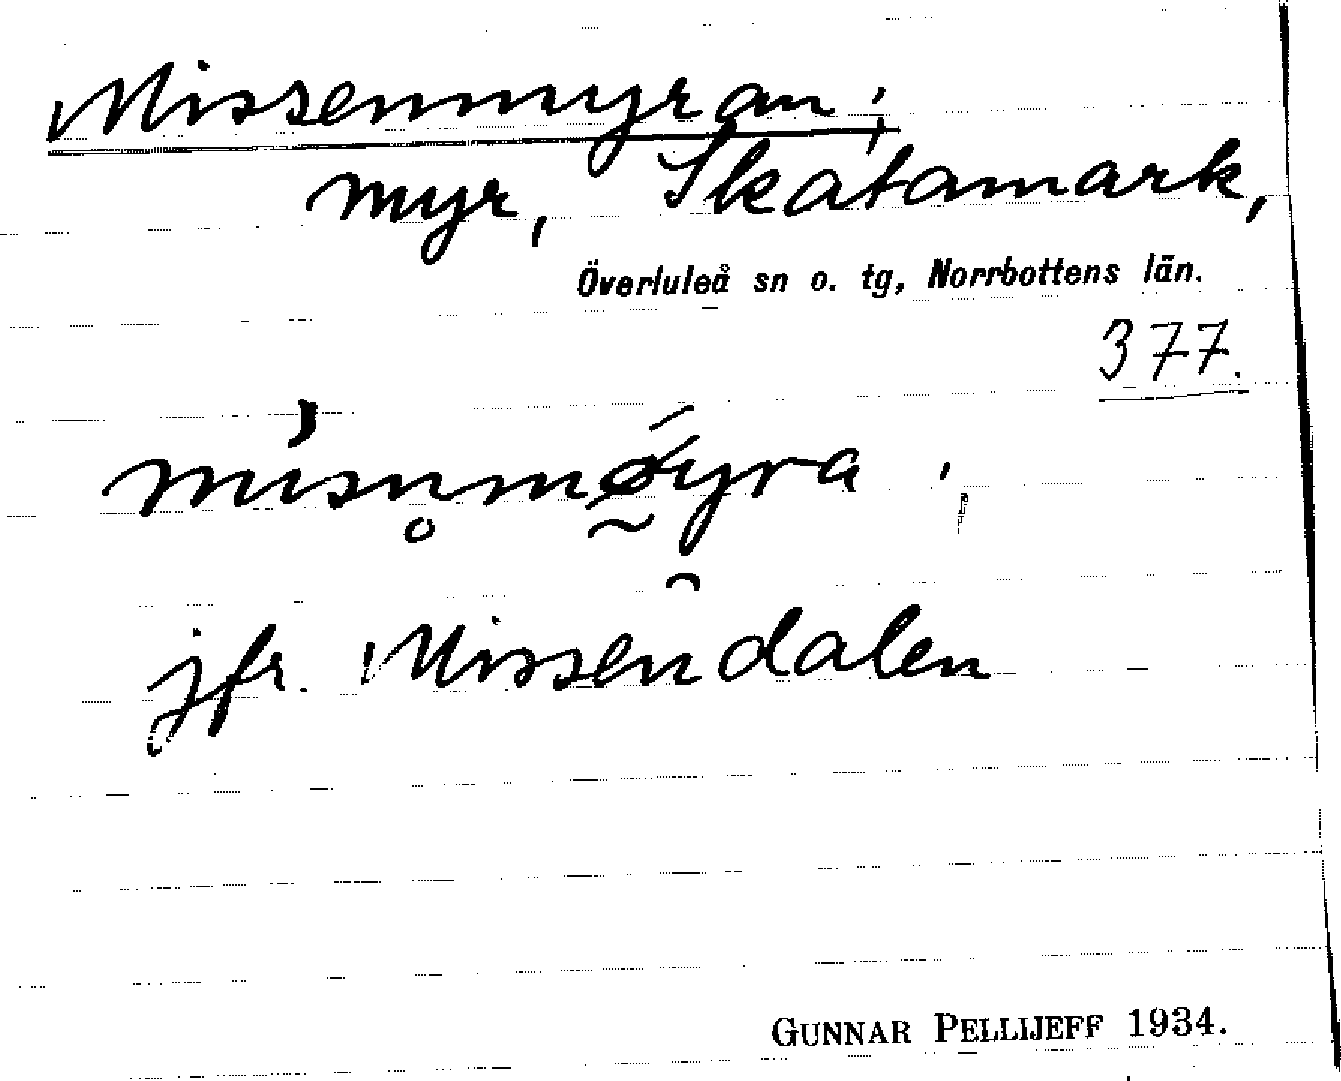 Missenmyran;
myr, Skatamark,
Överluleå sn o. tg, Norrbottens län.
377.
mi̍sn̥mǿ̰yra
jfr. Missendalen
GUNNAR PELLIJEFF 1934.